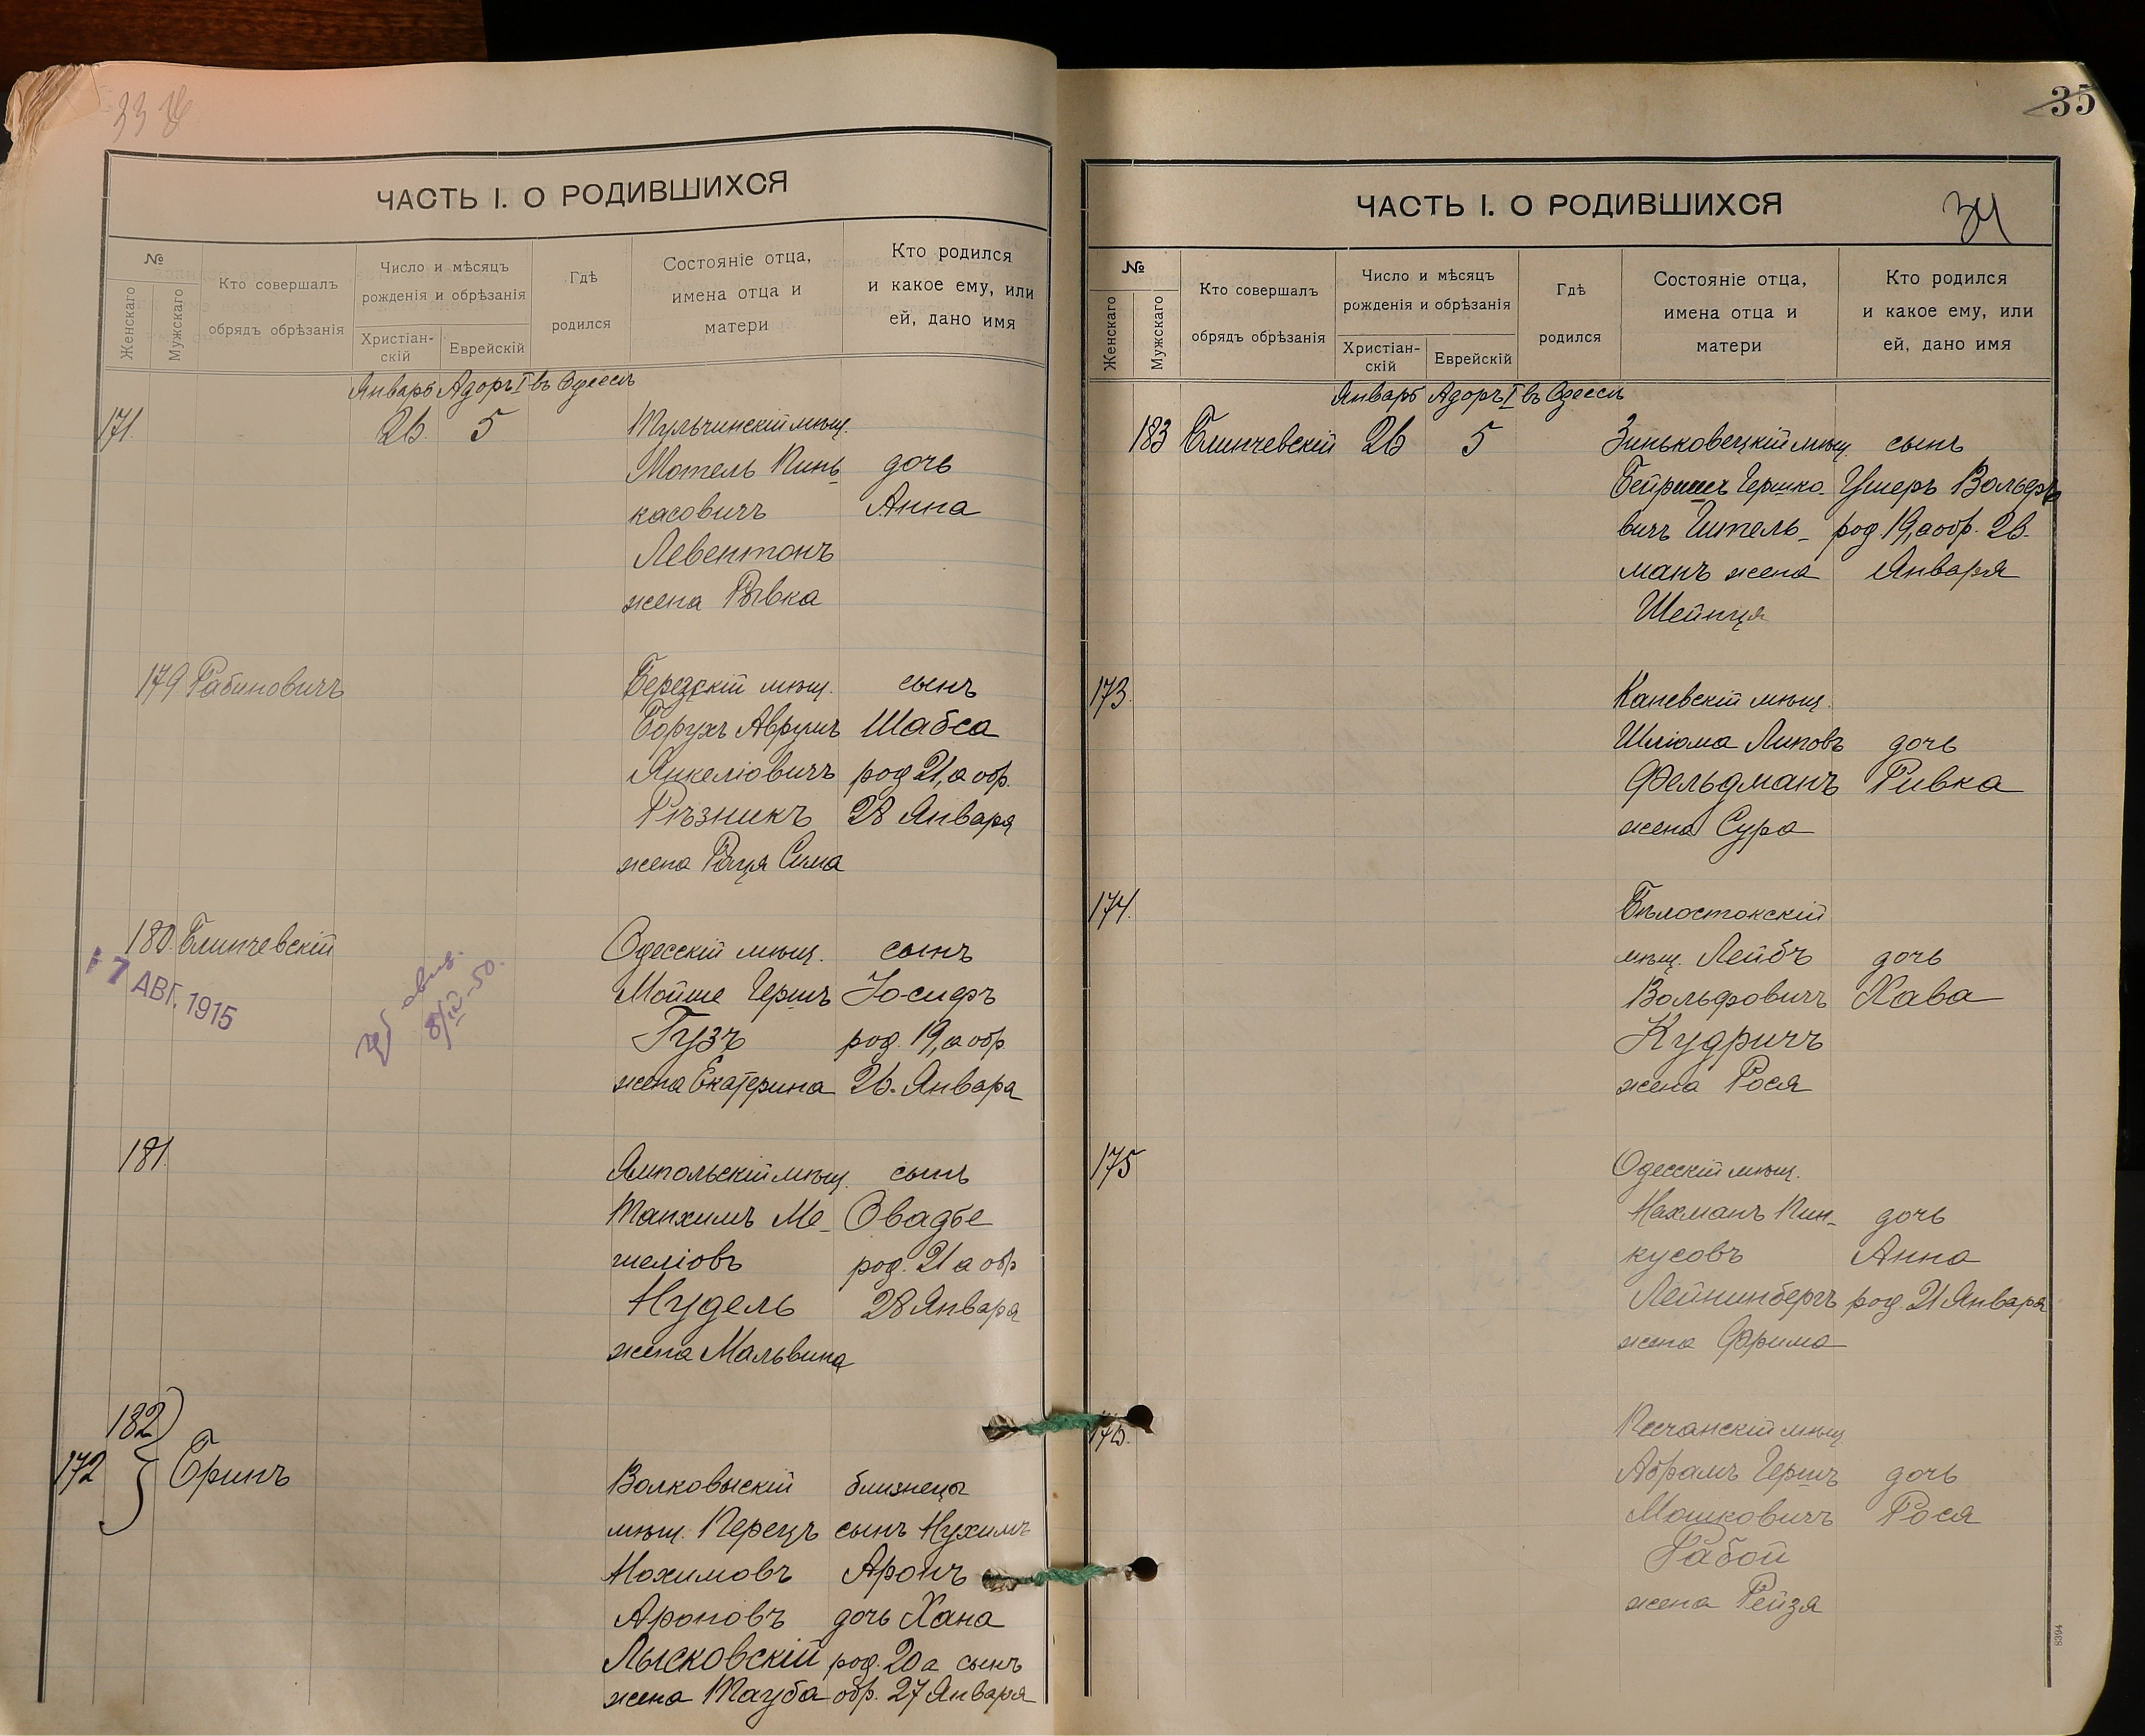 35
ЧАСТЬ I. О РОДИВШИХСЯ
№
Женскаго
Мужскаго
Кто совершалъ
обрядъ обрѣзанія
Число и мѣсяцъ
рожденія и обрѣзанія
Христіан-
скій
Еврейскій
Гдѣ
родился
Состояніе отца,
имена отца и
матери
Кто родился
и какое ему, или
ей, дано имя
Январь Адоръ I въ Одессѣ
171. 26. 5 Тульчинскій мѣщ.
Мотель Пинь- дочь
касовичъ Анна
Левентонъ
жена Рывка
179 Рабиновичъ Берездскій мѣщ. сынъ
Борухъ Аврумъ Шабса
Янкеліовичъ род 21, а обр.
Рѣзникъ 28 Января
жена Сима
180. Блинчевскій Одесскій мѣщ. сынъ
7 АВГ. 1915
Мойше Гершъ Іосифъ
Гузъ род. 19, а обр.
жена Екатерина 26. Января
8/IV-50.
181. Ямпольскій мѣщ. сынъ
Танхимъ Ме- Овадбе
шеліовъ род. 21 а обр
Нудель 28 Января
жена Мальвина
182
172 Бринъ Волковыскій близнецы
мѣщ. Перецъ сынъ Нухимъ
Нохимовъ Аронъ
Ароновъ дочь Хана
Лысковскій род. 20 а сынъ
жена Тауба обр. 27 Января
ЧАСТЬ I. О РОДИВШИХСЯ
34
№
Женскаго
Мужскаго
Кто совершалъ
обрядъ обрѣзанія
Число и мѣсяцъ
рожденія и обрѣзанія
Христіан-
скій
Еврейскій
Гдѣ
родился
Состояніе отца,
имена отца и
матери
Кто родился
и какое ему, или
ей, дано имя
Январь Адоръ I въ Одессѣ
183 Блинчевскій 26 5 Зиньковецкій мѣщ. сынъ
Бейришъ Гершко- Ушеръ Вольфъ
вичъ Гитель- род. 19, а обр. 26.
манъ жена Января
Шейнця
173. Каневскій мѣщ.
Шліома Липовъ дочь
Фельдманъ Ривка
жена Сура
174. Бѣлостокскій
мѣщ. Лейбъ дочь
Вольфовичъ Хава
Кудричъ
жена Рося
175 Одесскій мѣщ.
Нахманъ Пин- дочь
кусовъ Анна
Лейнинбергъ род. 21 Января
жена Фрима
176. Песчанскій мѣщ
Абрамъ Гершъ дочь
Мошковичъ Рося
Рабой
жена Рейзя
8394